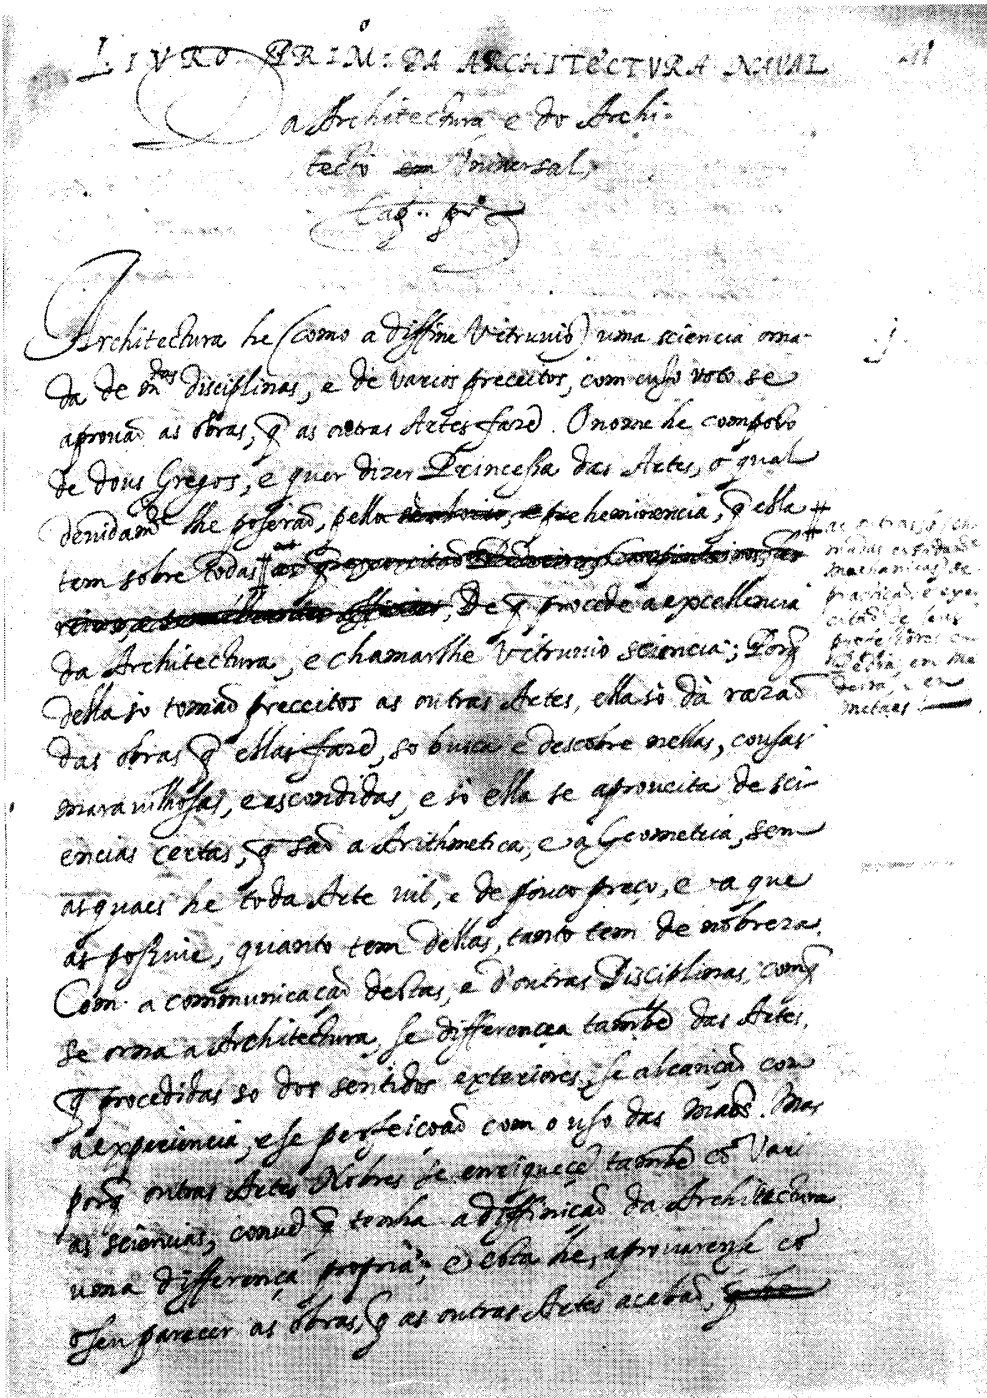 LIVRO PRIMº: DA ARCHITECTVRA NAVAL
Da Architectura e do Archi-
tecto em Vniuersal,
Cap.. prº
Architectura he (como a diffine Vitruuio) uma sciencia orna-
da de mtas disciplinas, e de varios preceitos, com cujo voto se
aprouaõ as obras, q̃ as outras Artes fazẽ. O nome he composto
de dous Gregos, e quer dizer Princessa das Artes, o qual
deuidamte lhe poseraõ, pella preheminencia, q̃ ella
tem sobre todas #
De q̃ procede a excellencia
da Architectura, e chamarlhe Vitruuio sciencia; Porq̃
della so tomaõ preceitos as outras Artes, ella sò dà razaõ
das obras q̃ ellas fazẽ, so busca e descobre nellas, cousas
marauilhosas, e escondidas, e sò ella se aproueita de sci-
encias certas, q̃ saõ a Arithmetica, e a Geometria, sem
as quaes he toda Arte uil, e de pouco preço, e a que
as possuie, quanto tem dellas, tanto tem de nobreza.
Com a communicaçaõ destas, e d'outras Disciplinas, comq̃
se orna a Architectura, se differencea tambẽ das Artes,
q̃ procedidas so dos sentidos exteriores, se alcançaõ com
a experiencia, e se perfeiçoaõ com o uso das maõs. Mas
porq̃ outras Artes Nobres se enriquecẽ tambẽ cõ Vari
as sciencias, conuẽ q̃ tenha a diffiniçaõ da Architectura
uma differença propria; e esta he, aprouarense cõ
o seu parecer as obras, q̃ as outras Artes acabaõ, q̃ he
# as outras, cha
madas
Machanicas, se
praticaõ, e exer
citaõ de seus
professores em
Pedra, em Ma
deira, e en
metaes